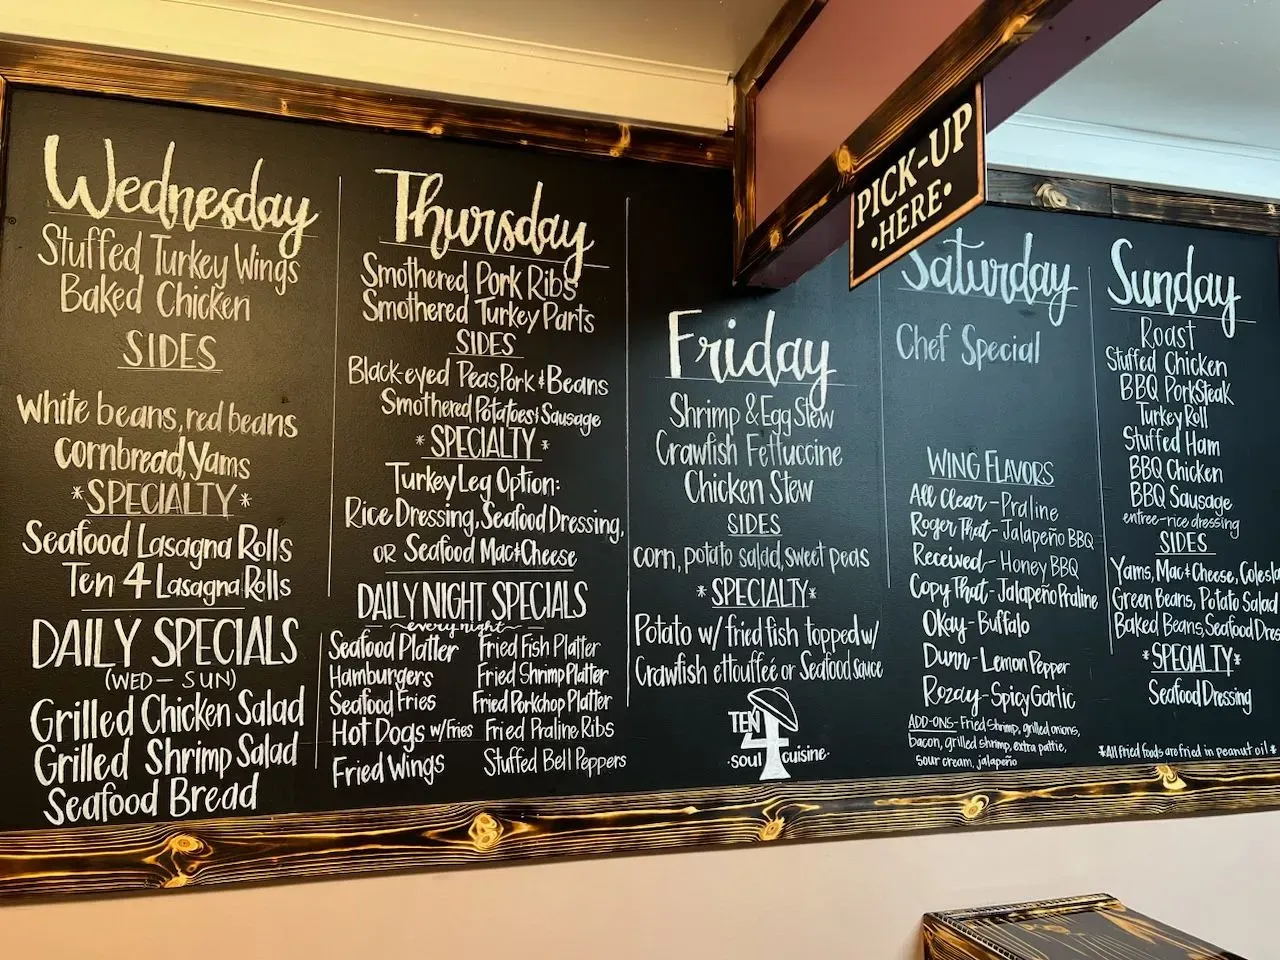 PICK-UP
• HERE •
Wednesday
Stuffed Turkey Wings
Baked Chicken
SIDES
white beans, red beans
cornbread, Yams
*SPECIALTY*
Seafood Lasagna Rolls
Ten 4 Lasagna Rolls
DAILY SPECIALS
(WED – SUN)
Grilled Chicken Salad
Grilled Shrimp Salad
Seafood Bread
Thursday
Smothered Pork Ribs
Smothered Turkey Parts
SIDES
Black-eyed Peas, Pork & Beans
Smothered Potatoes & Sausage
*SPECIALTY*
Turkey Leg Option:
Rice Dressing, Seafood Dressing,
OR Seafood Mac & Cheese
DAILY NIGHT SPECIALS
~every night~
Seafood Platter
Hamburgers
Seafood Fries
Hot Dogs w/ Fries
Fried Wings
Fried Fish Platter
Fried Shrimp Platter
Fried Porkchop Platter
Fried Praline Ribs
Stuffed Bell Peppers
Friday
Shrimp & Egg Stew
Crawfish Fettuccine
Chicken Stew
SIDES
corn, potato salad, sweet peas
*SPECIALTY*
Potato w/ fried fish topped w/
Crawfish ettouffeé or Seafood sauce
TEN
4
·soul cuisine·
Saturday
Chef Special
WING FLAVORS
All Clear - Praline
Roger That - Jalapeño BBQ
Received - Honey BBQ
Copy That - Jalapeño Praline
Okay - Buffalo
Dunn - Lemon Pepper
Rozay - Spicy Garlic
ADD-ONS - Fried Shrimp, grilled onions,
bacon, grilled shrimp, extra pattie,
sour cream, jalapeño
Sunday
Roast
Stuffed Chicken
BBQ Pork Steak
Turkey Roll
Stuffed Ham
BBQ Chicken
BBQ Sausage
entree-rice dressing
SIDES
Yams, Mac & Cheese, Colesla
Green Beans, Potato Salad
Baked Beans, Seafood Dres
*SPECIALTY*
Seafood Dressing
*All fried foods are fried in peanut oil*